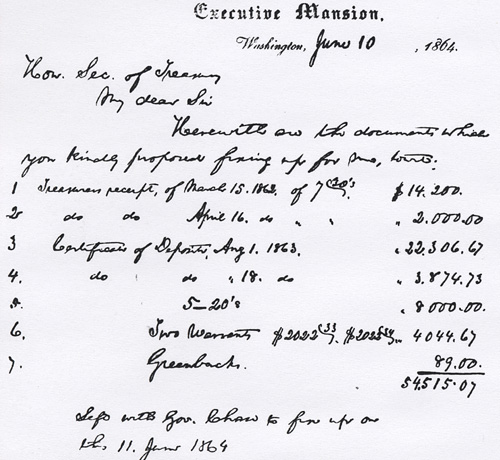 Executive Mansion,
Washington, June 10, 1864.
Hon. Sec. of Treasury
My dear Sir
Herewith are the documents which
you kindly proposed fixing up for me, towit:
1 Treasurers receipt, of March 15. 1862. of 7 (30)'s $14.200.
2 do do April 16. do " " " 2.000.00
3 Certificate of Deposite, Aug 1. 1863. " 22,306.67
4. do do " 18. do " 3.874.73
5. 5-20's " 8000.00
6. Two Warrants $2022(33). $2022(34) " 4044.67
7. Greenbacks. 89.00.
54.515.07
Left with Gov. Chase to fix up on
this 11. June 1864